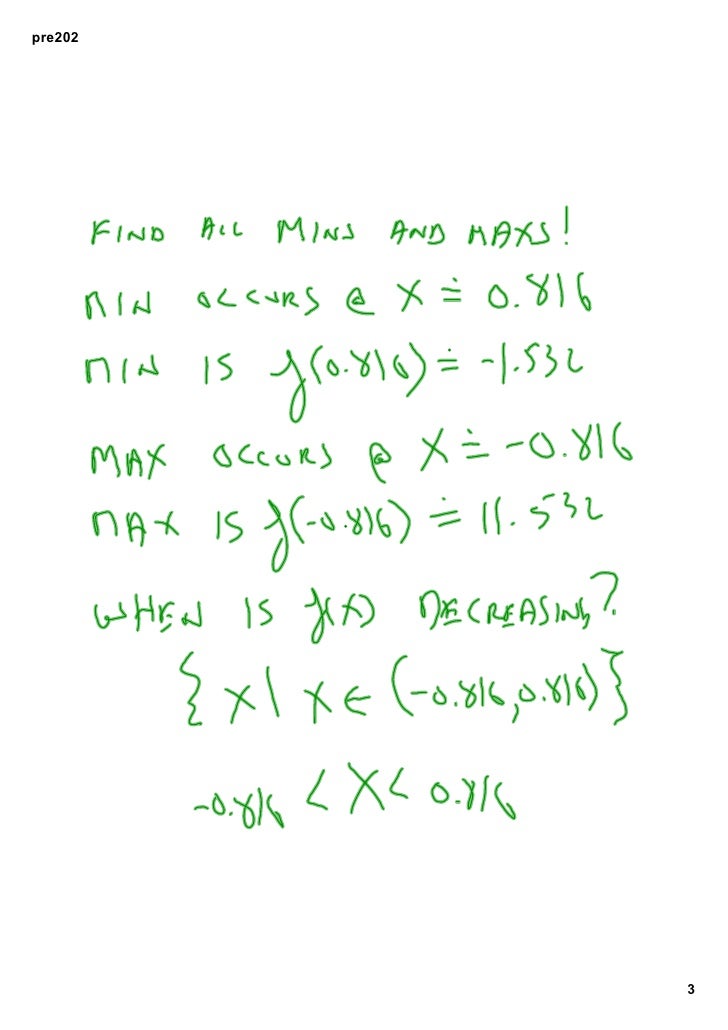 pre202
FIND ALL MINS AND MAXS!
MIN OCCURS @ X ≐ 0.816
MIN IS f(0.816) ≐ -1.532
MAX OCCURS @ X ≐ -0.816
MAX IS f(-0.816) ≐ 11.532
WHEN IS f(x) DECREASING?
{ X | X ∈ (-0.816, 0.816) }
-0.816 < X < 0.816
3